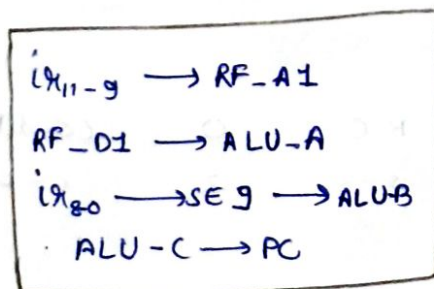 ir11-9 → RF_A1
RF_D1 → ALU_A
ir80 → SE9 → ALUB
ALU-C → PC